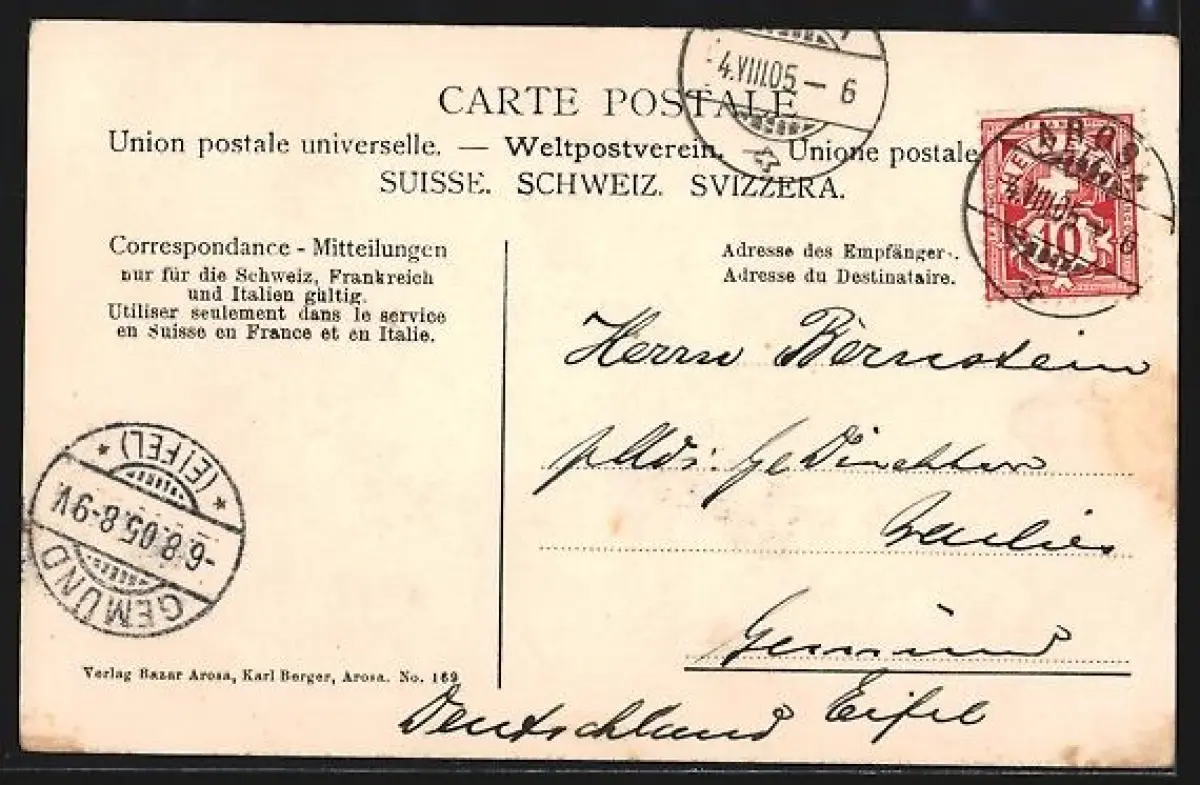 4.VIII.05-6
CARTE POSTALE
Union postale universelle. — Weltpostverein. Unione postale
SUISSE. SCHWEIZ. SVIZZERA.
HELVETIA
10
AROSA
4.VIII.05-6
Correspondance - Mitteilungen
nur für die Schweiz, Frankreich
und Italien gültig.
Utiliser seulement dans le service
en Suisse en France et en Italie.
Adresse des Empfängers.
Adresse du Destinataire.
Herrn Bernstein
Gemünd
Eifel
Deutschland
* (EIFEL) *
-6.8.05.8-9V.
GEMÜND
Verlag Bazar Arosa, Karl Berger, Arosa. No. 169